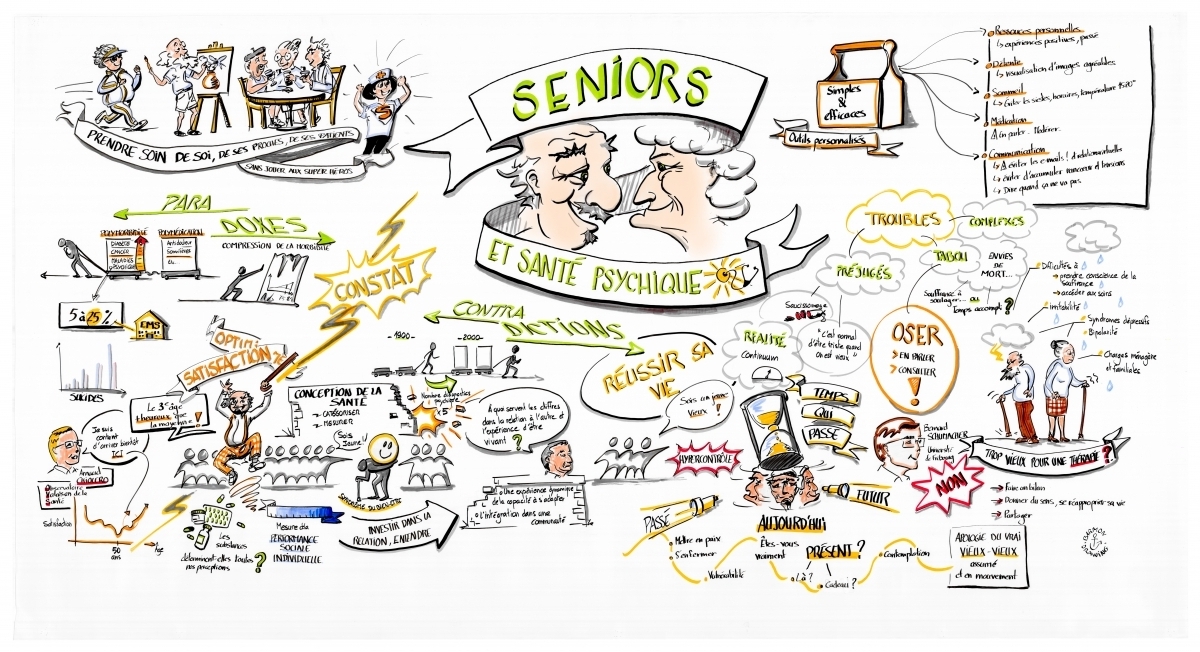 SENIORS
ET SANTÉ PSYCHIQUE
PRENDRE SOIN DE SOI, DE SES PROCHES, DE SES PATIENTS
SANS JOUER AUX SUPER HÉROS
S
Simples
&
efficaces
Outils personnalisés
Ressources personnelles
↳ expériences positives, passé
Détente
↳ visualisation d'images agréables
Sommeil
↳ Éviter les siestes, horaires, température
Médication
En parler. Modérer.
Communication
↳ à éviter les e-mails!
↳ éviter d'accumuler rancoeurs et tensions
↳ Dire quand ça ne va pas
PARA
DOXES
POLYMORBIDITÉ
DIABÈTE
CANCER
MALADIES
PSYCHIQUES
POLYMÉDICATION
Antidouleur
Somnifères
etc...
COMPRESSION DE LA MORBIDITÉ
5 à 25 %
EMS
SUICIDES
CONSTAT
OPTIMI
SATISFACTION %
Le 3e âge
+ heureux que
la moyenne !
Je suis
content
d'arriver bientôt
ICI
Arnaud
Observatoire
Valaisan de la
Santé
Satisfaction
50
ans
age
Les
substances
déterminent-elles toutes
nos perceptions ?
Mesure d'la
PERFORMANCE
SOCIALE
INDIVIDUELLE
CONTRA
DICTIONS
-1900-
-2000-
CONCEPTION DE LA
SANTÉ
→ CATÉGORISER
→ MESURER
Nombre diagnostics
psychiatrie
x5
Sois
Jeune!
À quoi servent les chiffres
dans la relation à l'autre, et
l'expérience d'être
vivant ?
INVESTIR DANS LA
RELATION, ENTENDRE
• Une expérience dynamique
de la capacité à s'adapter
• l'intégration dans une
communauté
RÉUSSIR SA
VIE
Sois un jeune
Vieux !
HYPERCONTRÔLE
RÉALITÉ
Continuum
Saucissonnage
"C'est normal
d'être triste quand
on est vieux"
PRÉJUGÉS
TROUBLES
COMPLEXES
TABOU
ENVIES
DE
MORT...
Souffrance à
soulager... ou
Temps accompli ?
OSER
> EN PARLER
> CONSULTER
!
TEMPS
QUI
PASSE
PASSÉ
FUTUR
AUJOURD'HUI
Êtes-vous
vraiment
PRÉSENT ?
• Mettre en paix
S'enfermer
Vulnérabilité
• Là ?
• Cadeau ?
• Contemplation
Difficultés à
→ prendre conscience de la
souffrance
→ accéder aux soins
irritabilité
Syndromes dépressifs
Bipolarité
Charges ménagère
et familiales
Bernard
SCHUMACHER
Université
de Fribourg
TROP VIEUX POUR UNE THÉRAPIE ?
NON
→ Faire un bilan
→ Donner du sens, se réapproprier sa vie
→ Partager
APOLOGIE DU VRAI
VIEUX-VIEUX
assumé
et en mouvement